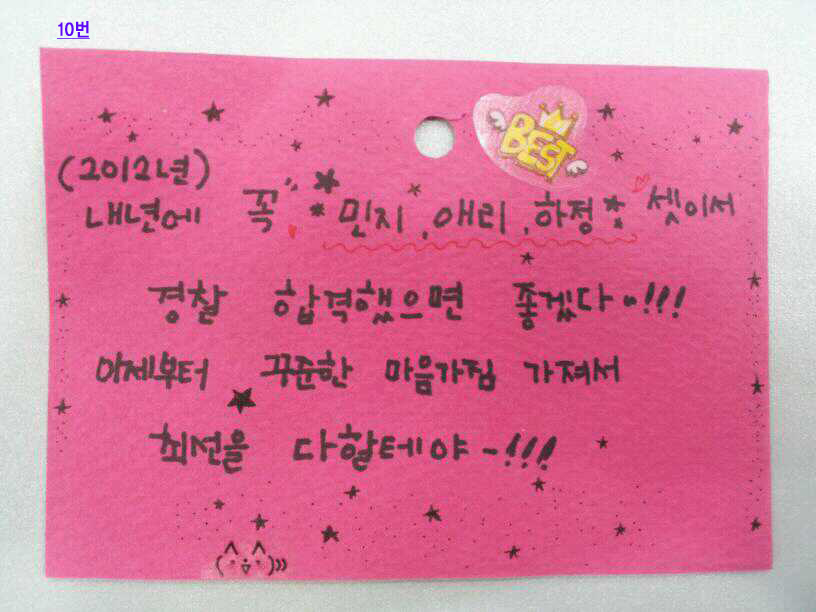 10번
BEST
(2012년)
내년에 꼭 민지, 애리, 하정 셋이서
경찰 합격했으면 좋겠다~!!!
이제부터 꾸준한 마음가짐 가져서
최선을 다할테야~!!!